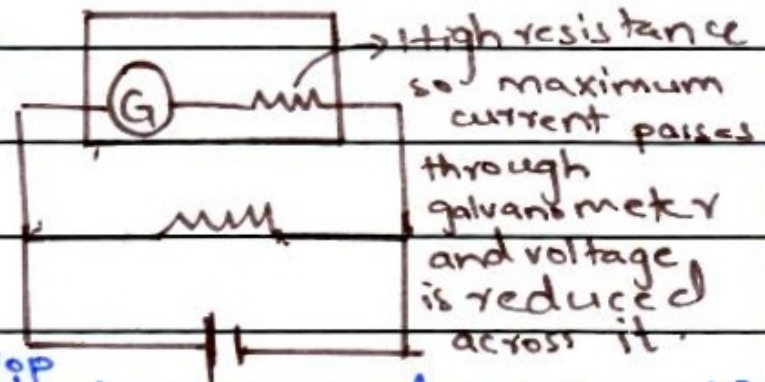 G
High resistance
so maximum
current passes
through
galvanometer
and voltage
is reduced
across it.